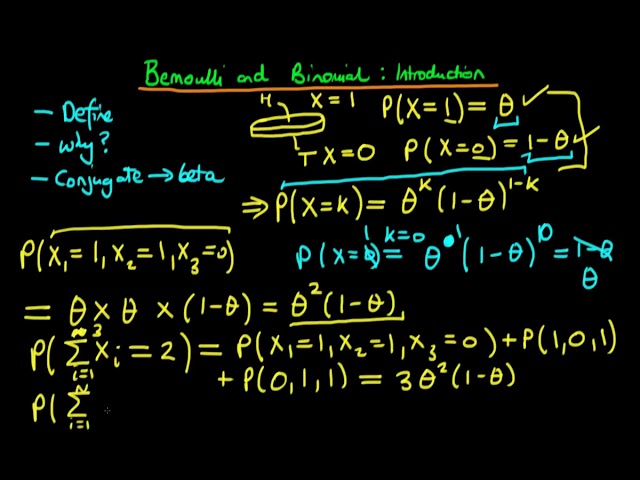 Bernoulli and Binomial : Introduction
- Define
- Why?
- Conjugate → beta
H X = 1 P(X = 1) = θ
T X = 0 P(X = 0) = 1 - θ
⇒ P(X = k) = θ^k (1 - θ)^{1-k}
P(X₁ = 1, X₂ = 1, X₃ = 0)
k = 0
P(X = 1) = θ^1 (1 - θ)^0 = 1 - θ
θ
= θ × θ × (1 - θ) = θ²(1 - θ)
P(∑_{i=1}^{3} X_i = 2) = P(X₁ = 1, X₂ = 1, X₃ = 0) + P(1, 0, 1)
+ P(0, 1, 1) = 3θ²(1 - θ)
P(∑_{i=1}^{N}